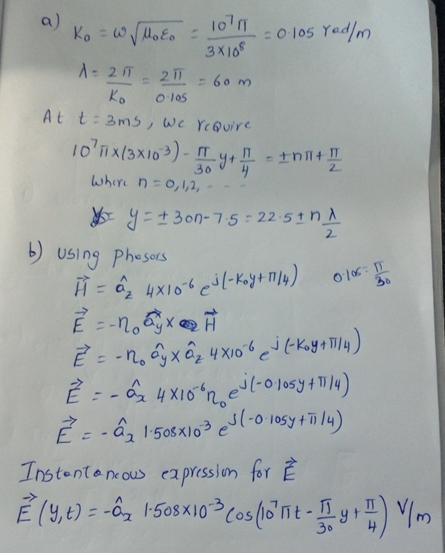 a) K₀ = ω√μ₀ε₀ = 10⁷π / 3×10⁸ = 0.105 rad/m
λ = 2π / K₀ = 2π / 0.105 = 60 m
At t = 3ms, we require
10⁷π×(3×10⁻³) - π/30 y + π/4 = ±nπ + π/2
where n = 0,1,2, - - - -
y = ±30n - 7.5 = 22.5 ± n λ/2
b) Using phasors
H⃗ = â_z 4×10⁻⁶ e^j(-K₀y + π/4) 0.105 = π/30
E⃗ = -η₀ â_y × H⃗
E⃗ = -η₀ â_y × â_z 4×10⁻⁶ e^j(-K₀y + π/4)
E⃗ = - â_x 4×10⁻⁶ η₀ e^j(-0.105y + π/4)
E⃗ = - â_x 1.508×10⁻³ e^j(-0.105y + π/4)
Instantaneous expression for E⃗
E⃗ (y,t) = - â_x 1.508×10⁻³ cos(10⁷πt - π/30 y + π/4) V/m